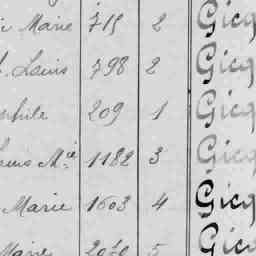 Marie 715 2 Gicq
Louis 798 2 Gicq
209 1 Gicq
Mie 1182 3 Gicq
Marie 1603 4 Gicq
Marie 5 Gicq